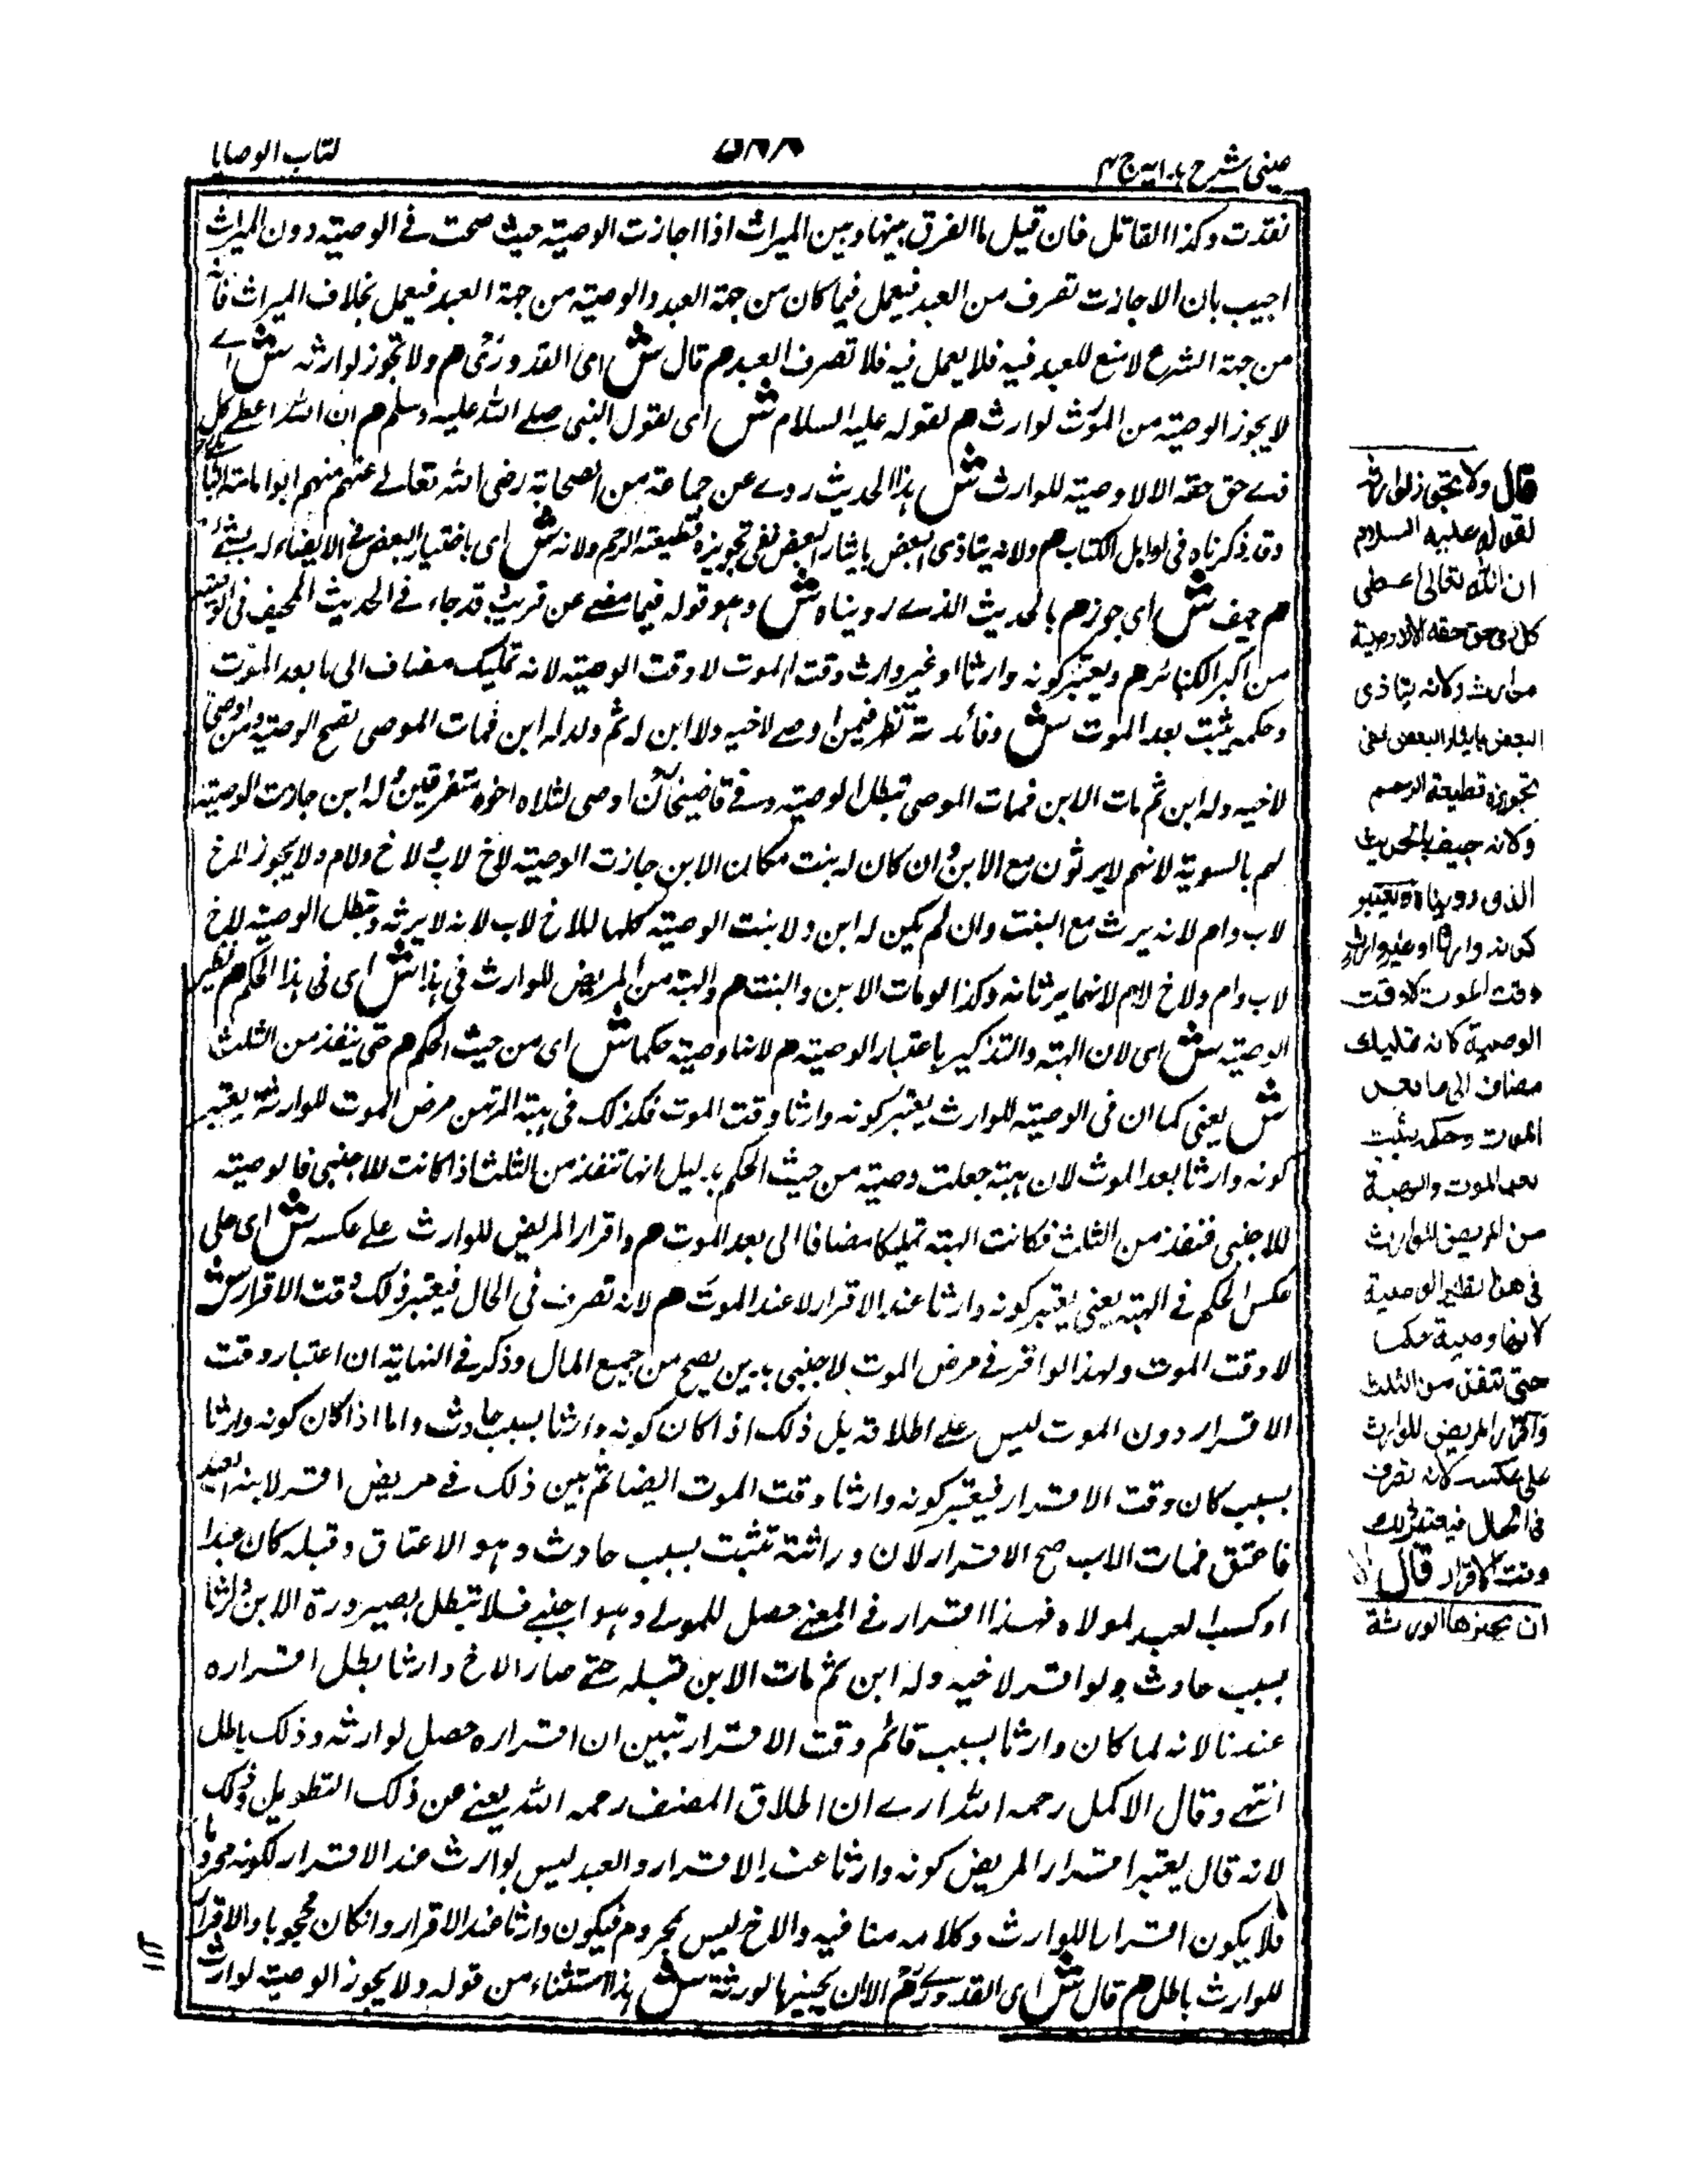 عینی شرح ہدایہ ج ۴
کتاب الوصایا
نفذت وكذا القاتل فان قيل ما الفرق بينها وبين الميراث اذا اجازت الوصية حيث صحت في الوصية دون الميراث
اجيب بان الاجازت تصرف من العبد فيعمل فيما كان من جهة العبد والوصية من جهة العبد فيعمل بخلاف الميراث فانه
من جهة الشرع لا صنع للعبد فيه فلا يعمل فيه فلا تصرف العبد م قال ش اى القدورىؒ م ولا تجوز لوارثه ش اے
لا يجوز الوصية من المورث لوارث م لقوله عليه السلام ش اى لقول النبى صلے الله عليه وسلم م ان الله اعطے كل
ذے حق حقه الا لا وصية للوارث ش هذا الحديث روے عن جماعة من الصحابة رضى الله تعالے عنهم منهم ابو امامة
وقد ذكرناه فى اوايل الكتاب م ولانه يتاذى البعض بايثار البعض ففى تجويزه قطيعة الرحم ولانه ش اى باختيار البعض فى الايصاء له بشئ
م حيف ش اى جور م بالحديث الذے رويناه ش وهو قوله فيما مضے عن قريب قد جاء فے الحديث الحيف فى الوصية
من اكبر الكبائر م ويعتبر كونه وارثا او غير وارث وقت الموت لا وقت الوصية لانه تمليك مضاف الى ما بعد الموت
وحكمه يثبت بعد الموت ش وفائدته تظهر فيمن اوصے لاخيه ولا ابن له ثم ولد له ابن فمات الموصى تصح الوصية ومن اوصى
لاخيه وله ابن ثم مات الابن فمات الموصى تبطل الوصية وفے قاضيخان اوصى لثلاثه اخوه متفرقين وله ابن جازت الوصية
لهم بالسوية لانهم لا يرثون مع الابن وان كان له بنت مكان الابن جازت الوصية لاخ لاب ولاخ ولام ولا يجوز للاخ
لاب وام لانه يرث مع البنت وان لم يكن له ابن ولا بنت الوصية كلها للاخ لاب لانه لا يرثه وتبطل الوصيه لاخ
لاب وام ولاخ لام لانهما يرثانه وكذا لو مات الابن والبنت م والهبة من المريض للوارث فى هذا ش اى فى هذا الحكم م نظير
الوصية ش اى لان الهبة والتذكير باعتبار الوصية م لانها وصية حكما ش اى من حيث الحكم م حتى ينفذ من الثلث
ش يعنى كما ان فى الوصية للوارث يعتبر كونه وارثا وقت الموت فكذلك فى هبة المرتهن مرض الموت للوارث يعتبر
كونه وارثا بعد الموت لان هبته جعلت وصية من حيث الحكم بدليل انها تنفذ من الثلث اذا كانت للاجنبى فالوصية
للاجنبى فتنفذ من الثلث فكانت الهبة تمليكا مضافا الى بعد الموت م واقرار المريض للوارث علے عكسه ش اى على
عكس الحكم فے الهبة يعنى يعتبر كونه وارثا عند الاقرار لا عند الموت م لانه تصرف فى الحال فيعتبر ذلك وقت الاقرار ش
لا وقت الموت ولهذا لو اقر فے مرض الموت لاجنبى بدين يصح من جميع المال وذكر فے النهاية ان اعتبار وقت
الاقرار دون الموت ليس علے اطلاقه بل ذلك اذا كان كونه وارثا بسبب حادث واما اذا كان كونه وارثا
بسبب كان وقت الاقرار فيعتبر كونه وارثا وقت الموت ايضا ثم بين ذلك فے مريض اقر لابنه العبد
فاعتق فمات الاب صح الاقرار لان وراثته تثبت بسبب حادث وهو الاعتاق وقبله كان عبدا
او كسب العبد لمولاه فهذا اقرار فے المعنے حصل للمولے وهو اجنبے فلا تبطل بصيرورة الابن وارثا
بسبب حادث ولو اقر لاخيه وله ابن ثم مات الابن قبله حتے صار الاخ وارثا بطل اقراره
عندنا لانه لما كان وارثا بسبب قائم وقت الاقرار تبين ان اقراره حصل لوارثه وذلك باطل
انتهے وقال الاكمل رحمه الله ارے ان اطلاق المصنف رحمه الله يغنے عن ذلك التطويل وذلك
لانه قال يعتبر اقرار المريض كونه وارثا عند الاقرار والعبد ليس بوارث عند الاقرار لكونه محروما
فلا يكون اقرارا للوارث وكلامه منا فيه والاخ ليس بمحروم فيكون وارثا عند الاقرار وانكان محجوبا والاقرار
للوارث باطل م قال ش اى القدورےؒ م الا ان يجيزها الورثة ش هذا استثناء من قوله ولا يجوز الوصية لوارث
قال ولا تجوز لوارثه
لقوله عليه السلام
ان الله تعالى اعطى
كل ذى حق حقه الا لا وصية
لوارث ولانه يتاذى
البعض بايثار البعض ففى
تجويزه قطيعة الرحم
ولانه حيف بالحديث
الذى رويناه ويعتبر
كونه وارثا او غير وارث
وقت الموت لا وقت
الوصية لانه تمليك
مضاف الى ما بعد
الموت وحكمه يثبت
بعد الموت والهبة
من المريض للوارث
فى هذا نظير الوصية
لانها وصية حكما
حتى تنفذ من الثلث
واقرار المريض للوارث
على عكسه لانه تصرف
فى الحال فيعتبر ذلك
وقت الاقرار قال الا
ان يجيزها الورثة